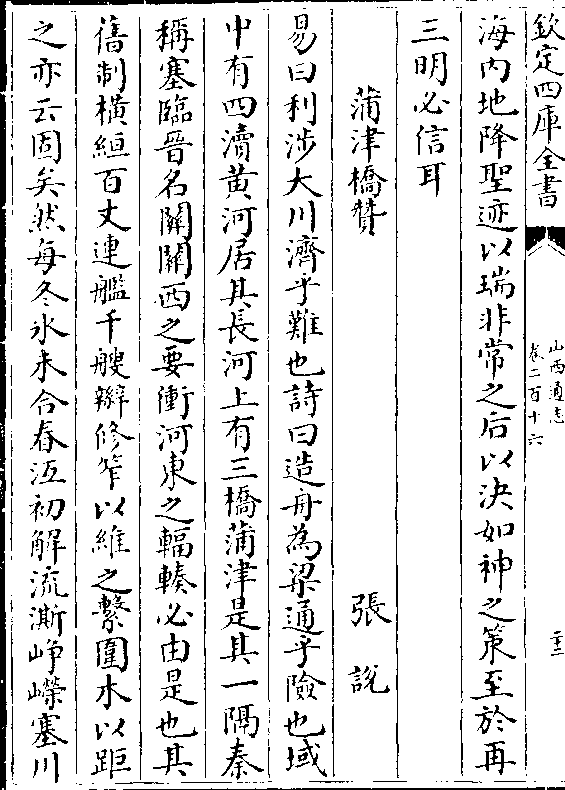 欽定四庫全書
山西通志
卷二百十六
二十二
海内地降聖迹以瑞非常之后以決如神之策至於再
三明必信耳
蒲津橋贊
張說
易曰利涉大川濟乎難也詩曰造舟為梁通乎險也域
中有四瀆黄河居其長河上有三橋蒲津是其一隅秦
稱塞臨晉名關關西之要衝河東之輻輳必由是也其
舊制橫絙百丈連艦千艘辮修笮以維之繫圍木以距
之亦云固矣然每冬冰未合春沍初解流澌崢嶸塞川